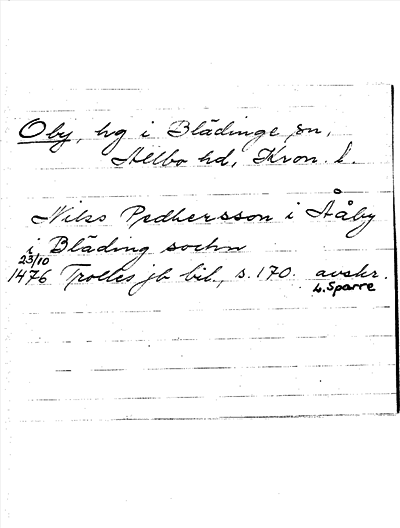 Oby, hg i Blädinge sn,
Allbo hd, Kron. l.
Nils Pædhersson i Aåby
i Bläding sochn
23/10
1476 Trolles jb bil., s. 170. avskr.
L. Sparre